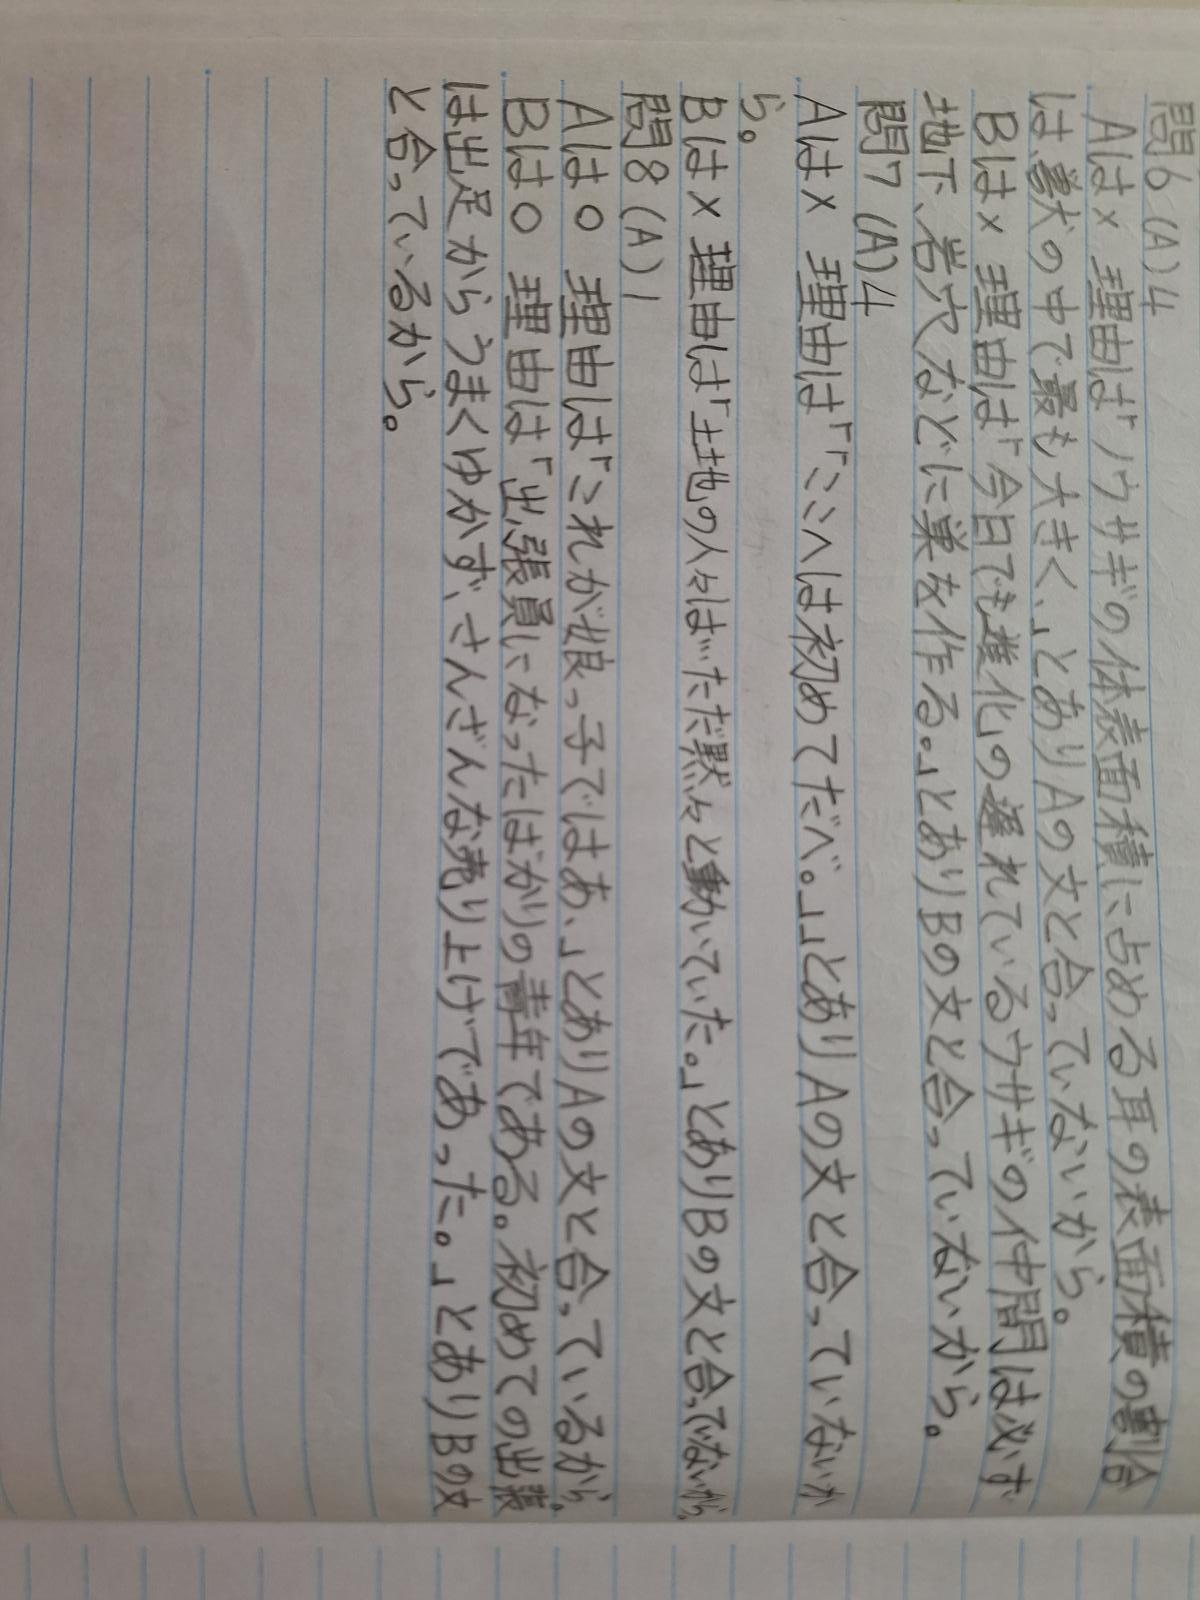 問6 (A) 4
Aは× 理由は「ノウサギの体表面積に占める耳の表面積の割合
は、獣の中で最も大きく、」とありAの文と合っていないから。
Bは× 理由は「今日でも進化の遅れているウサギの仲間は必ず
地下、岩穴などに巣を作る。」とありBの文と合っていないから。
問7 (A) 4
Aは× 理由は「「ここへは初めてだべ。」」とありAの文と合っていないか
ら。
Bは× 理由は「土地の人々は…ただ黙々と動いていた。」とありBの文と合っていないから。
問8 (A) 1
Aは○ 理由は「これが娘っ子ではあ、」とありAの文と合っているから。
Bは○ 理由は「出張員になったばかりの青年である。初めての出張
は出足からうまくゆかず、さんざんな売り上げであった。」とありBの文
と合っているから。